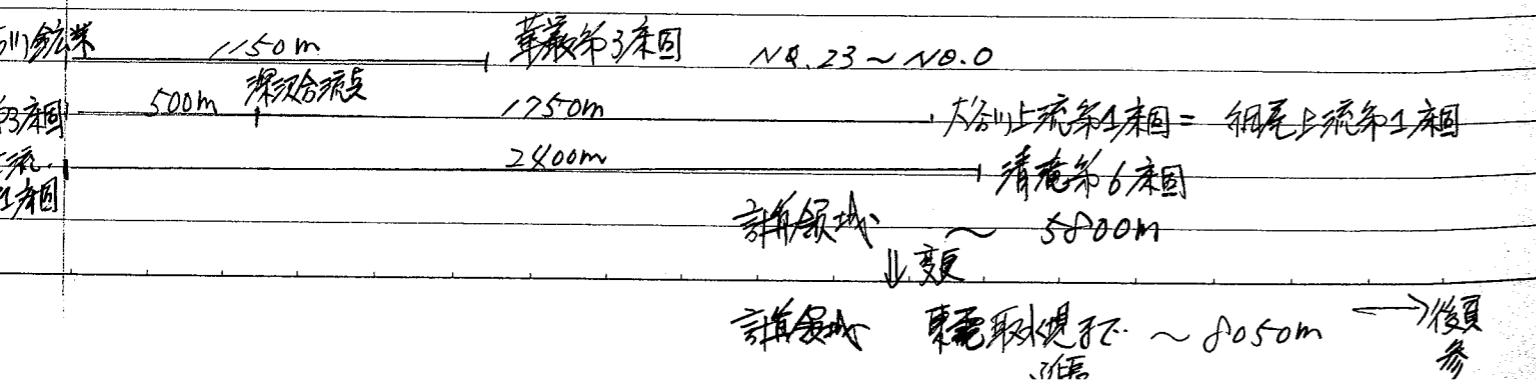 川鉱業 1150m 華厳第3床固 NO.23～NO.0
500m 深沢合流点 1750m 大谷川上流第1床固＝細尾上流第1床固
第3床固
2400m 清滝第6床固
上流
第1床固
計算領域 ～ 5800m
⇓変更
計算領域 東電取水堰まで ～8050m ←→後頁
参